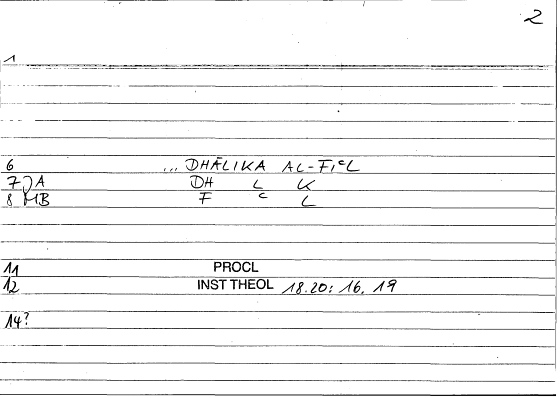 2
1
6 ... DHĀLIKA AL-FIᶜL
7 JA DH L K
8 MB F ᶜ L
11 PROCL
12 INST THEOL 18.20: 16, 19
14?